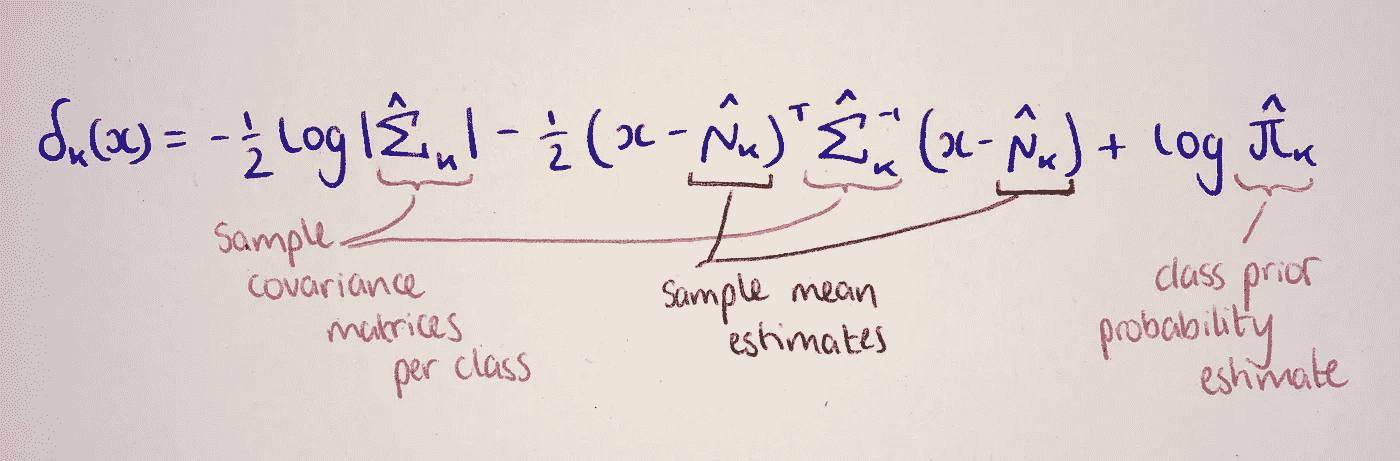 δₖ(x) = -½ log|Σ̂ₖ| - ½ (x - μ̂ₖ)ᵀ Σ̂ₖ⁻¹ (x - μ̂ₖ) + log π̂ₖ
sample
covariance
matrices
per class
sample mean
estimates
class prior
probability
estimate